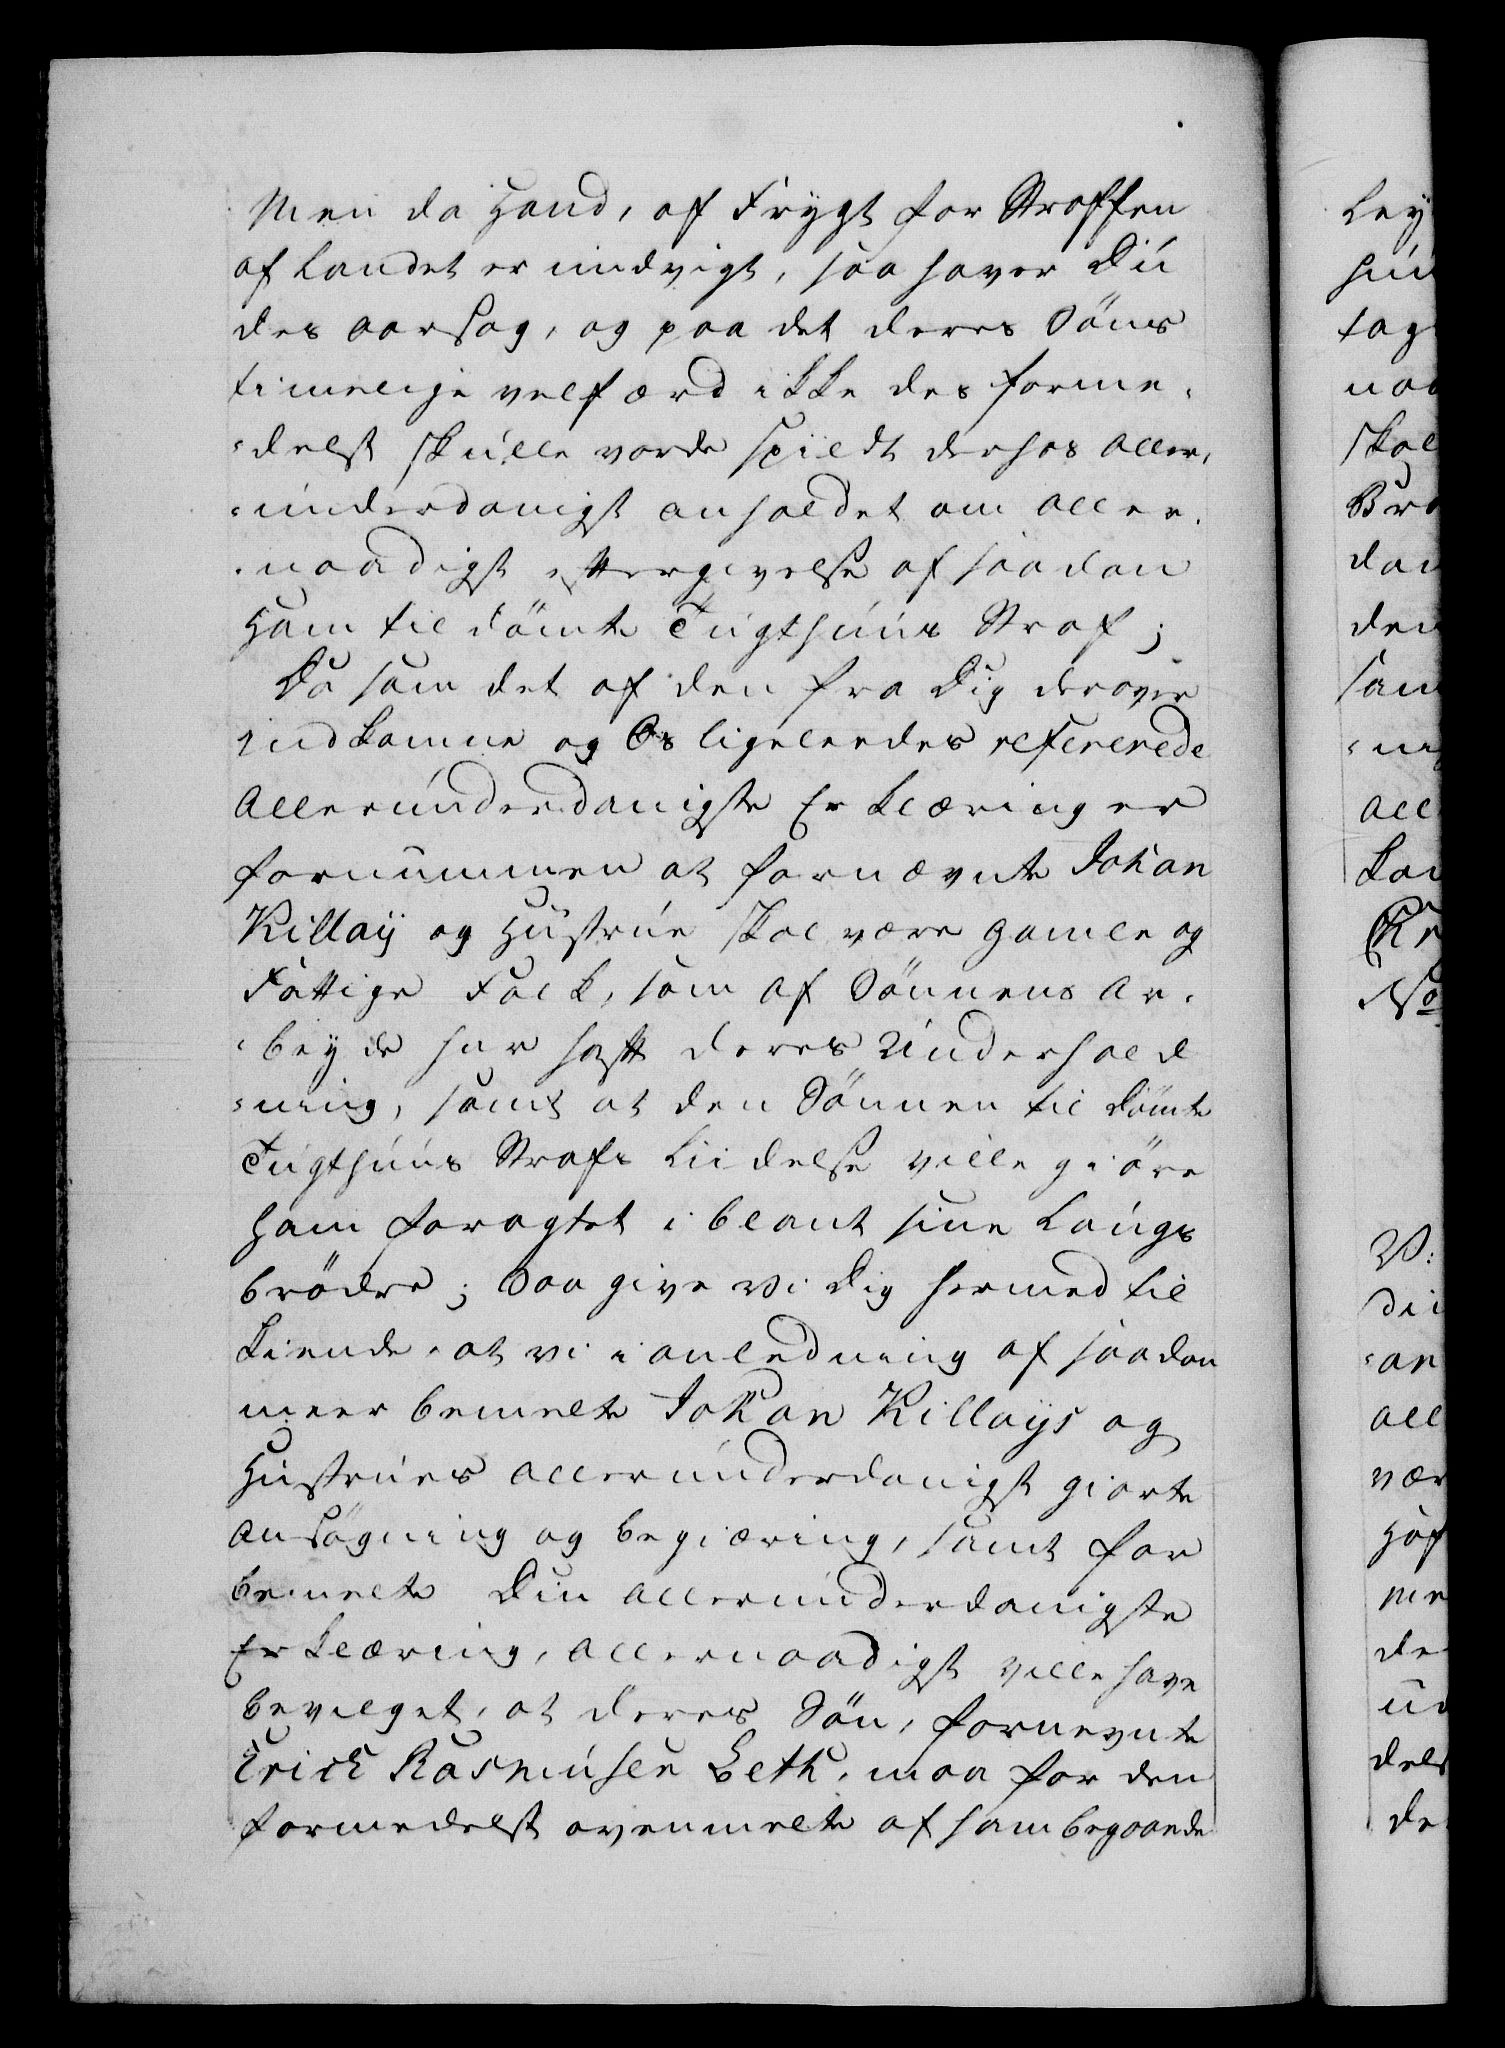 Men da Hand, af Frygt for Straffen
af Landet er undvigt, saa haver Du
des aarsag, og paa det deres Søns
timelige velfærd ikke des forme¬
¬delst skulle vorde spildt derhos aller¬
¬underdanigst anholdet om aller¬
¬naadigst eftergivelse af saadan
Ham til dømte Tugthuus Straf;
Da som det af den fra Dig derover
indkomne og Os ligeleedes refererede
Allerunderdanigste Erklæring er
fornummen at fornævnte Johan
Killaÿ og Hustrue skal være gamle og
Fattige Folk, som af Sønnens Ar¬
¬beyde har haft deres Underhold
¬ning, samt at den Sønnen til dømte
Tugthuus Strafs Liidelse ville giøre
ham foragtet iblant sine Laugs
brødre; Saa give Vi Dig hermed til
kiende, at vi i anledning af saadan
meer bemelte Johan Killaÿs og
Hustrues allerunderdanigst giorte
ansøgning og begiæring, samt for
bemelte Din allerunderdanigste
Erklæring, allernaadigst ville have
bevilget, at deres Søn, fornevnte
Erich Rasmusen Beth, maa for den
formedelst ovenmelte af ham begaaede